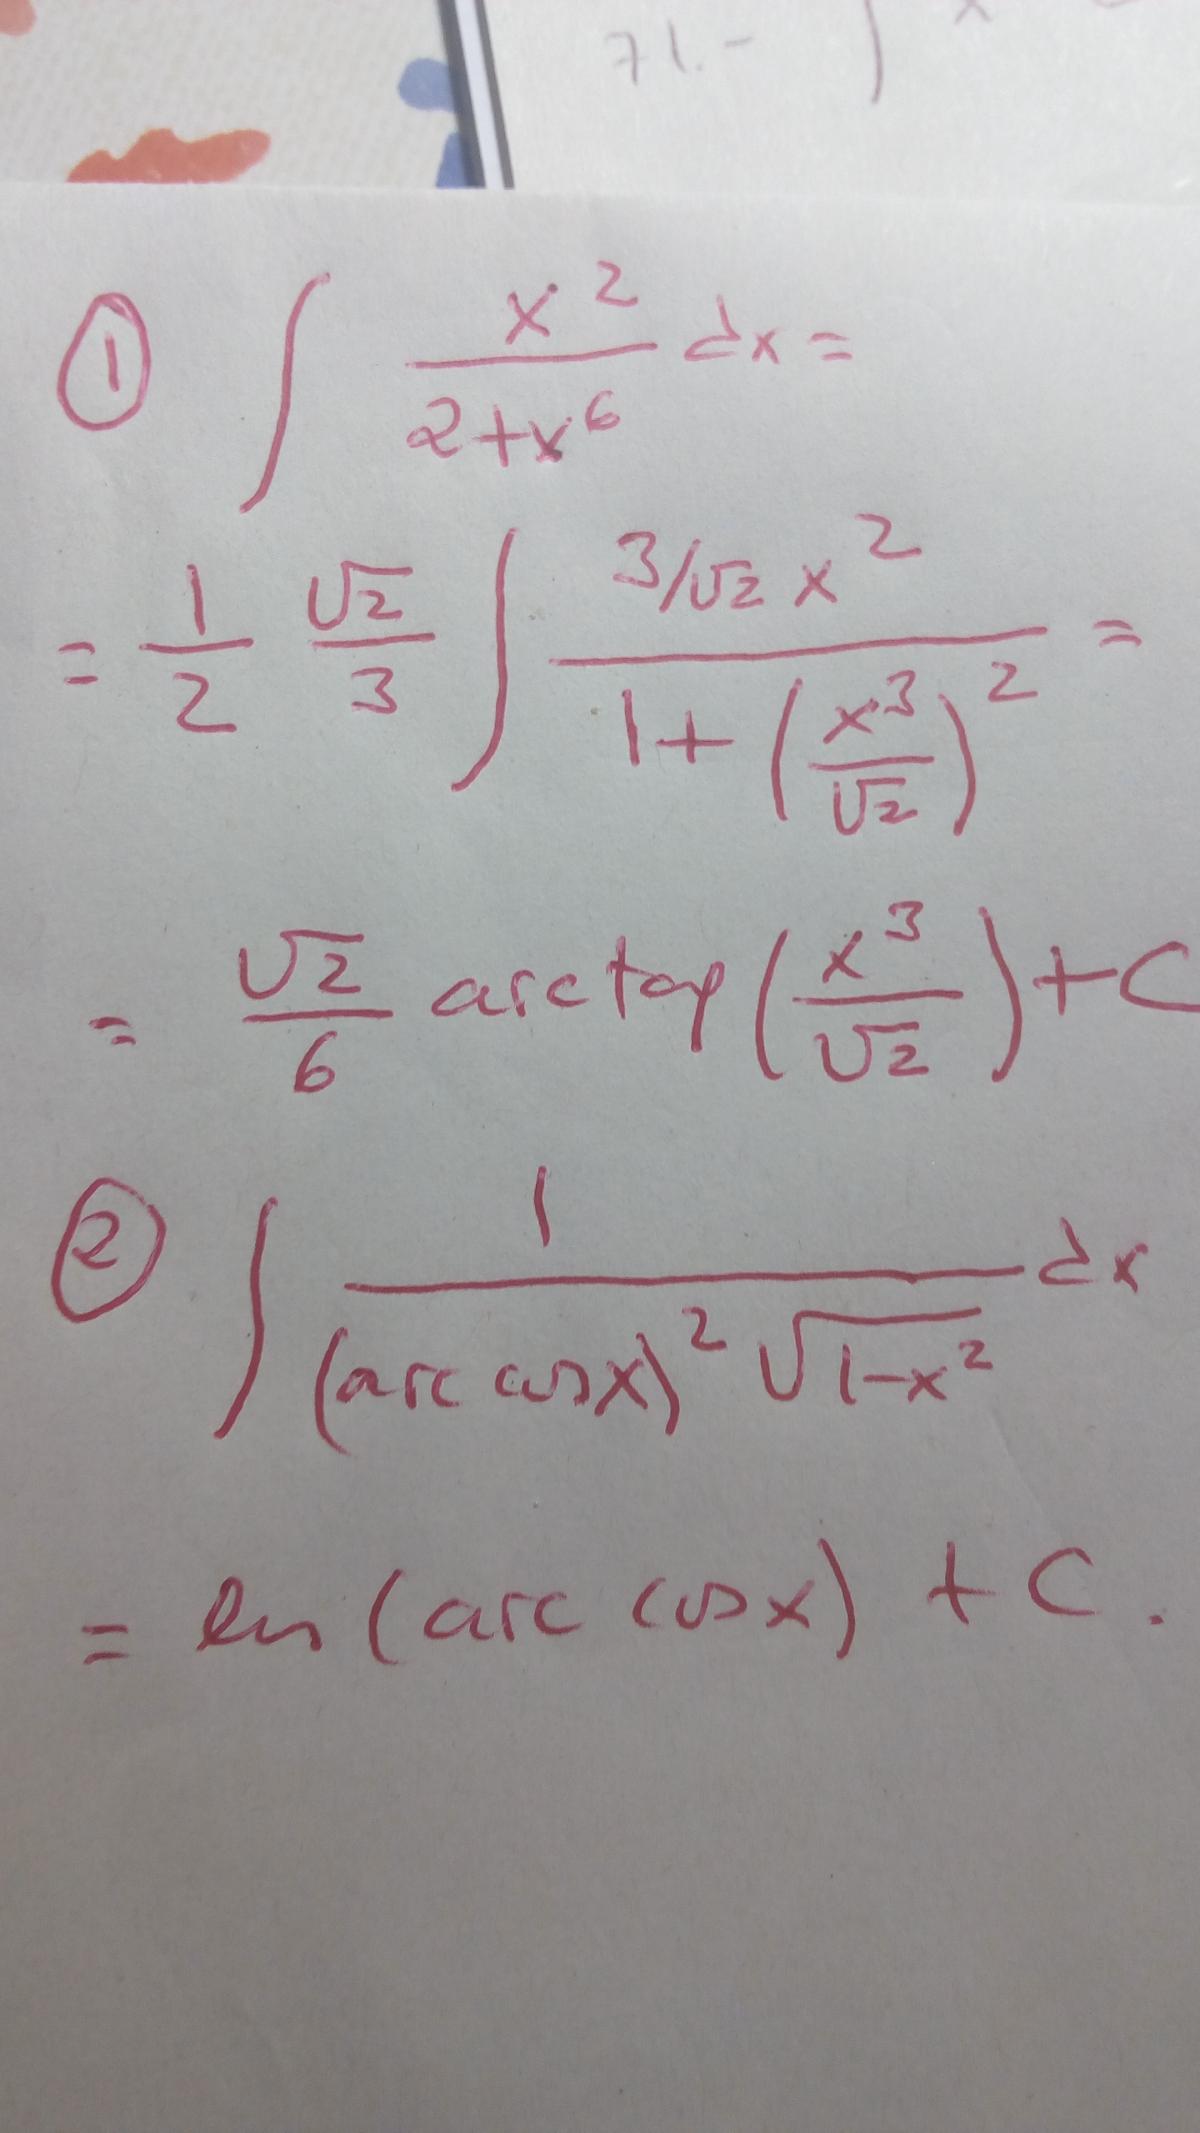 71.- ∫ x
① ∫ x² / (2+x⁶) dx =
= 1/2 √2/3 ∫ (3/√2 x²) / (1+(x³/√2)²) =
= √2/6 arctag (x³/√2) + C
② ∫ 1 / ((arc cos x)² √(1-x²)) dx
= ln (arc cos x) + C.